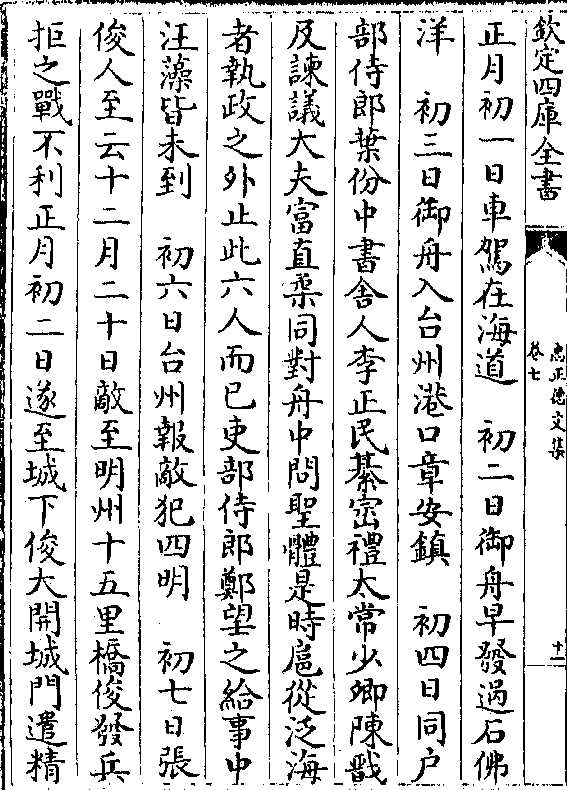 欽定四庫全書
忠正德文集
卷七
十一
正月初一日車駕在海道　初二日御舟早發過石佛
洋　初三日御舟入台州港口章安鎮　初四日同户
部侍郎葉份中書舍人李正民綦崈禮太常少卿陳戩
及諫議大夫富直柔同對舟中問聖體是時扈從泛海
者執政之外止此六人而已吏部侍郎鄭望之給事中
汪藻皆未到　初六日台州報敵犯四明　初七日張
俊人至云十二月二十日敵至明州十五里橋俊發兵
拒之戰不利正月初二日遂至城下俊大開城門遣精